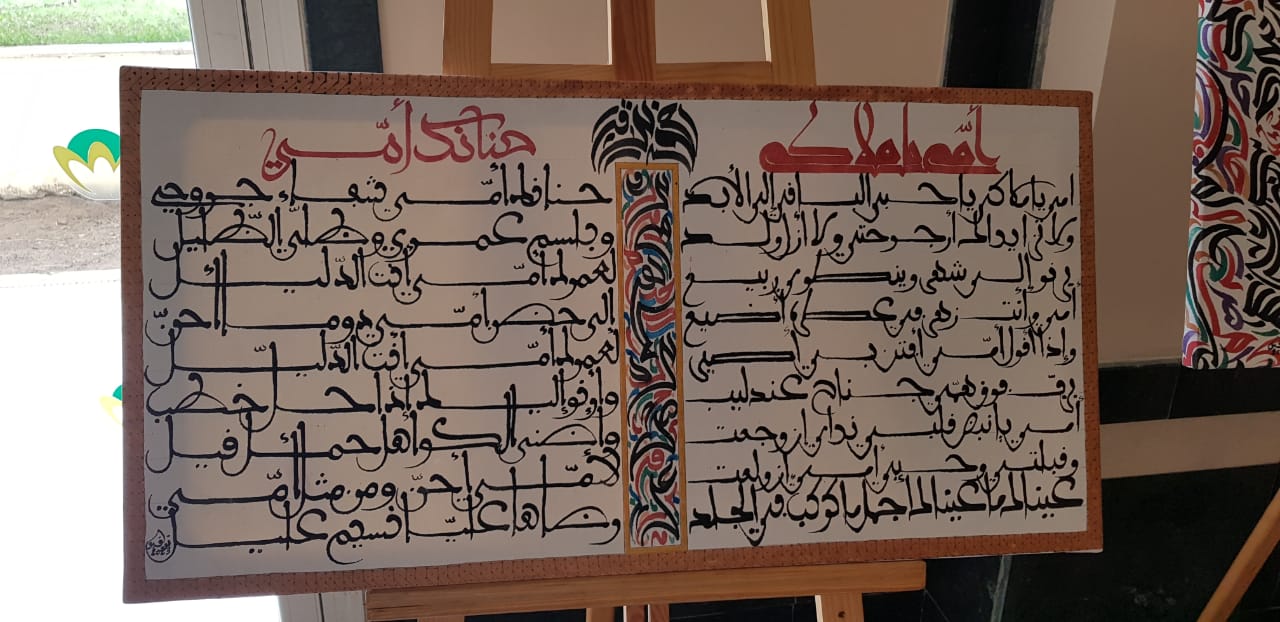 أمي يا ملاكي
أمي يا ملاكي يا حبي الباقي إلى الأبد
ولا تزل يداك أرجوحتي ولا أزل ولد
يرنو إلي شهر وينطوي ربيع
أمي وأنت زهر في عطره أضيع
وإذا أقول أمي أفتن بي أطيب
يرف فوق همي جناح عندليب
أمي يا نبض قلبي نداي إن وجعت
وقبلتي وحبي أمي إن ولعت
عيناك ما عيناك أجمل ما كوكب في الجلد
حنانك أمّي
حنانك أمّي شفاء جروحي
وبلسم عمري وظلّي الظّليل
لعمرك أمّي أنت الدّليل
إلى حضن أمّي دوما أحنّ
لعمرك أمّي أنت الدّليل
وأرنو إليك إذا حل خطب
وأضنى الكواهل حمل ثقيل
لأمّي أحنّ ومن مثل أمّي
رضاها عليّا نسيم عليل